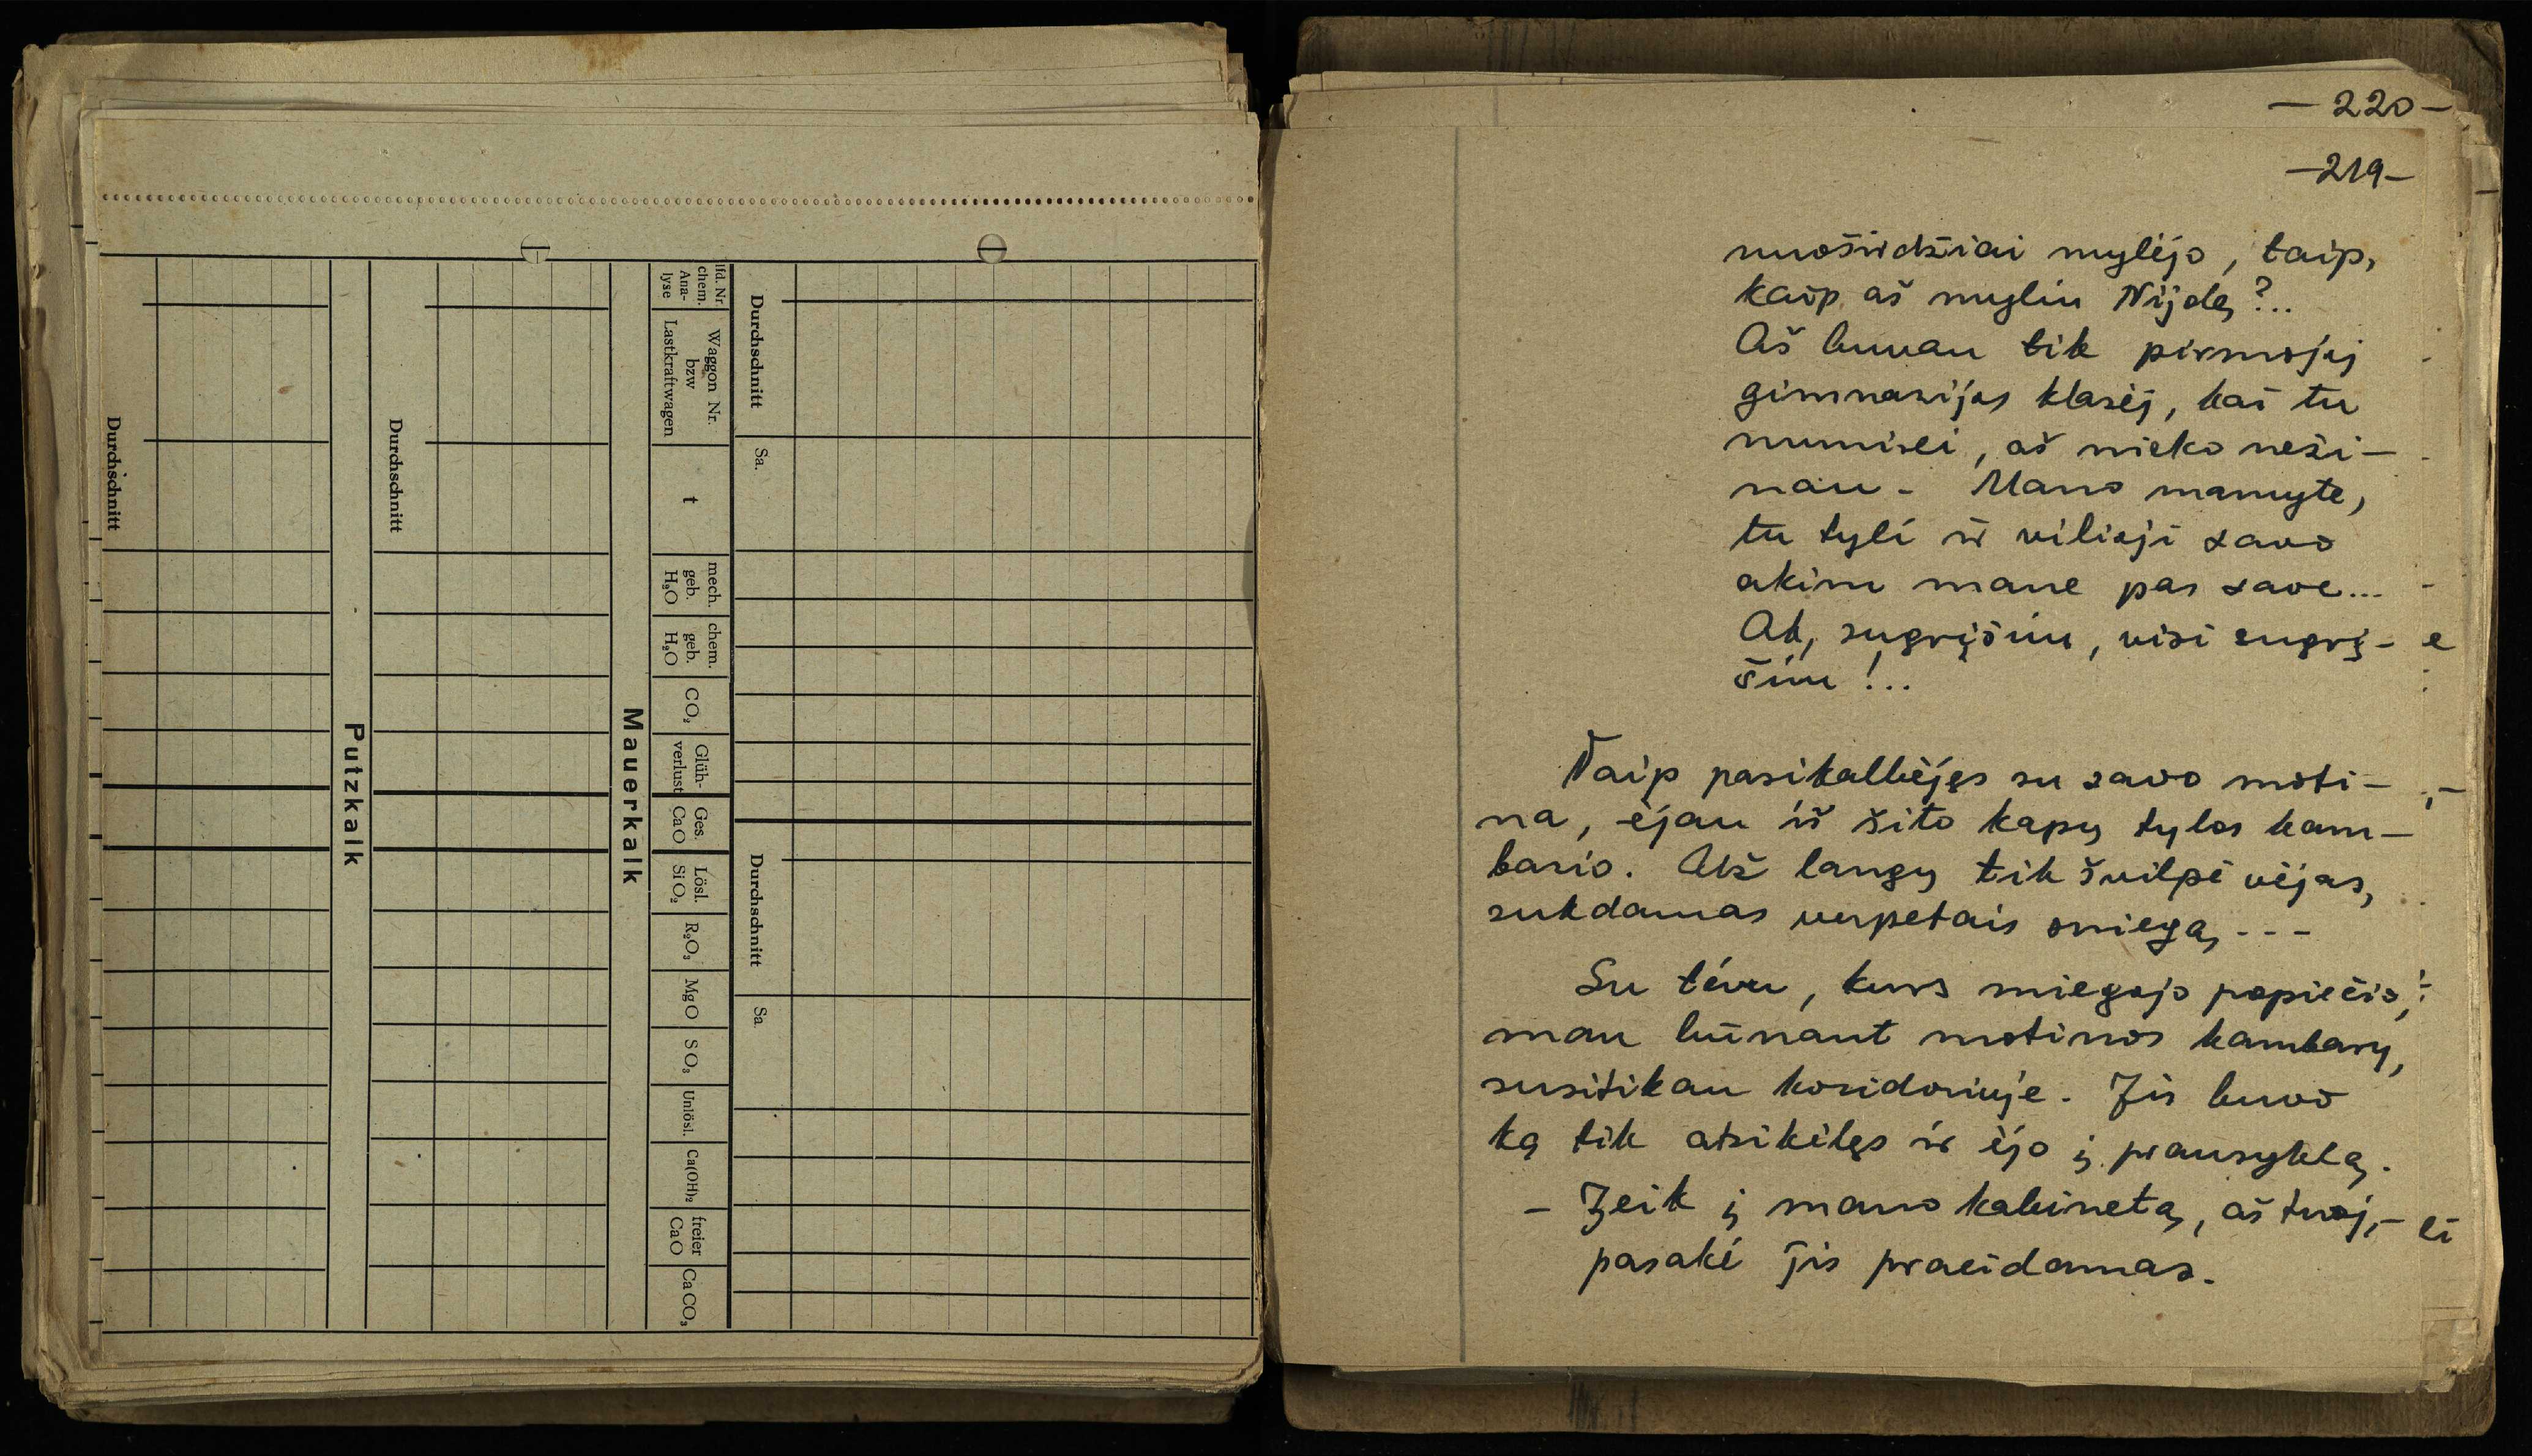 Durchschnitt
Putzkalk
Durchschnitt
Mauerkalk
lfd. Nr.
chem.
Ana-
lyse
Waggon Nr.
bzw
Lastkraftwagen
t
mech.
geb.
H₂O
chem.
geb.
H₂O
CO₂
Glüh-
verlust
Ges.
CaO
Lösl.
SiO₂
R₂O₃
MgO
SO₃
Unlösl.
Ca(OH)₂
freier
CaO
CaCO₃
Durchschnitt
Sa.
Durchschnitt
Sa
—220—
—219—
nuoširdžiai mylėjo, taip,
kaip aš myliu Nijolę?..
Aš buvau tik pirmojoj
gimnazijos klasėj, kai tu
numirei, aš nieko neži-
nau. Mano mamyte,
tu tyli ir vilioji savo
akim mane pas save...
Ak, sugrįšiu, visi sugrį-
šim!..
Taip pasikalbėjęs su savo moti-
na, ėjau iš šito kapų tylos kam-
bario. Už langų tik švilpė vėjas,
sukdamas verpetais sniegą - - -
Su tėvu, kurs miegojo popiečio,
man būnant motinos kambary,
susitikau koridoriuje. Jis buvo
ką tik atsikėlęs ir ėjo į prausyklą.
- Įeik į mano kabinetą, aš tuoj,-
pasakė jis praeidamas.